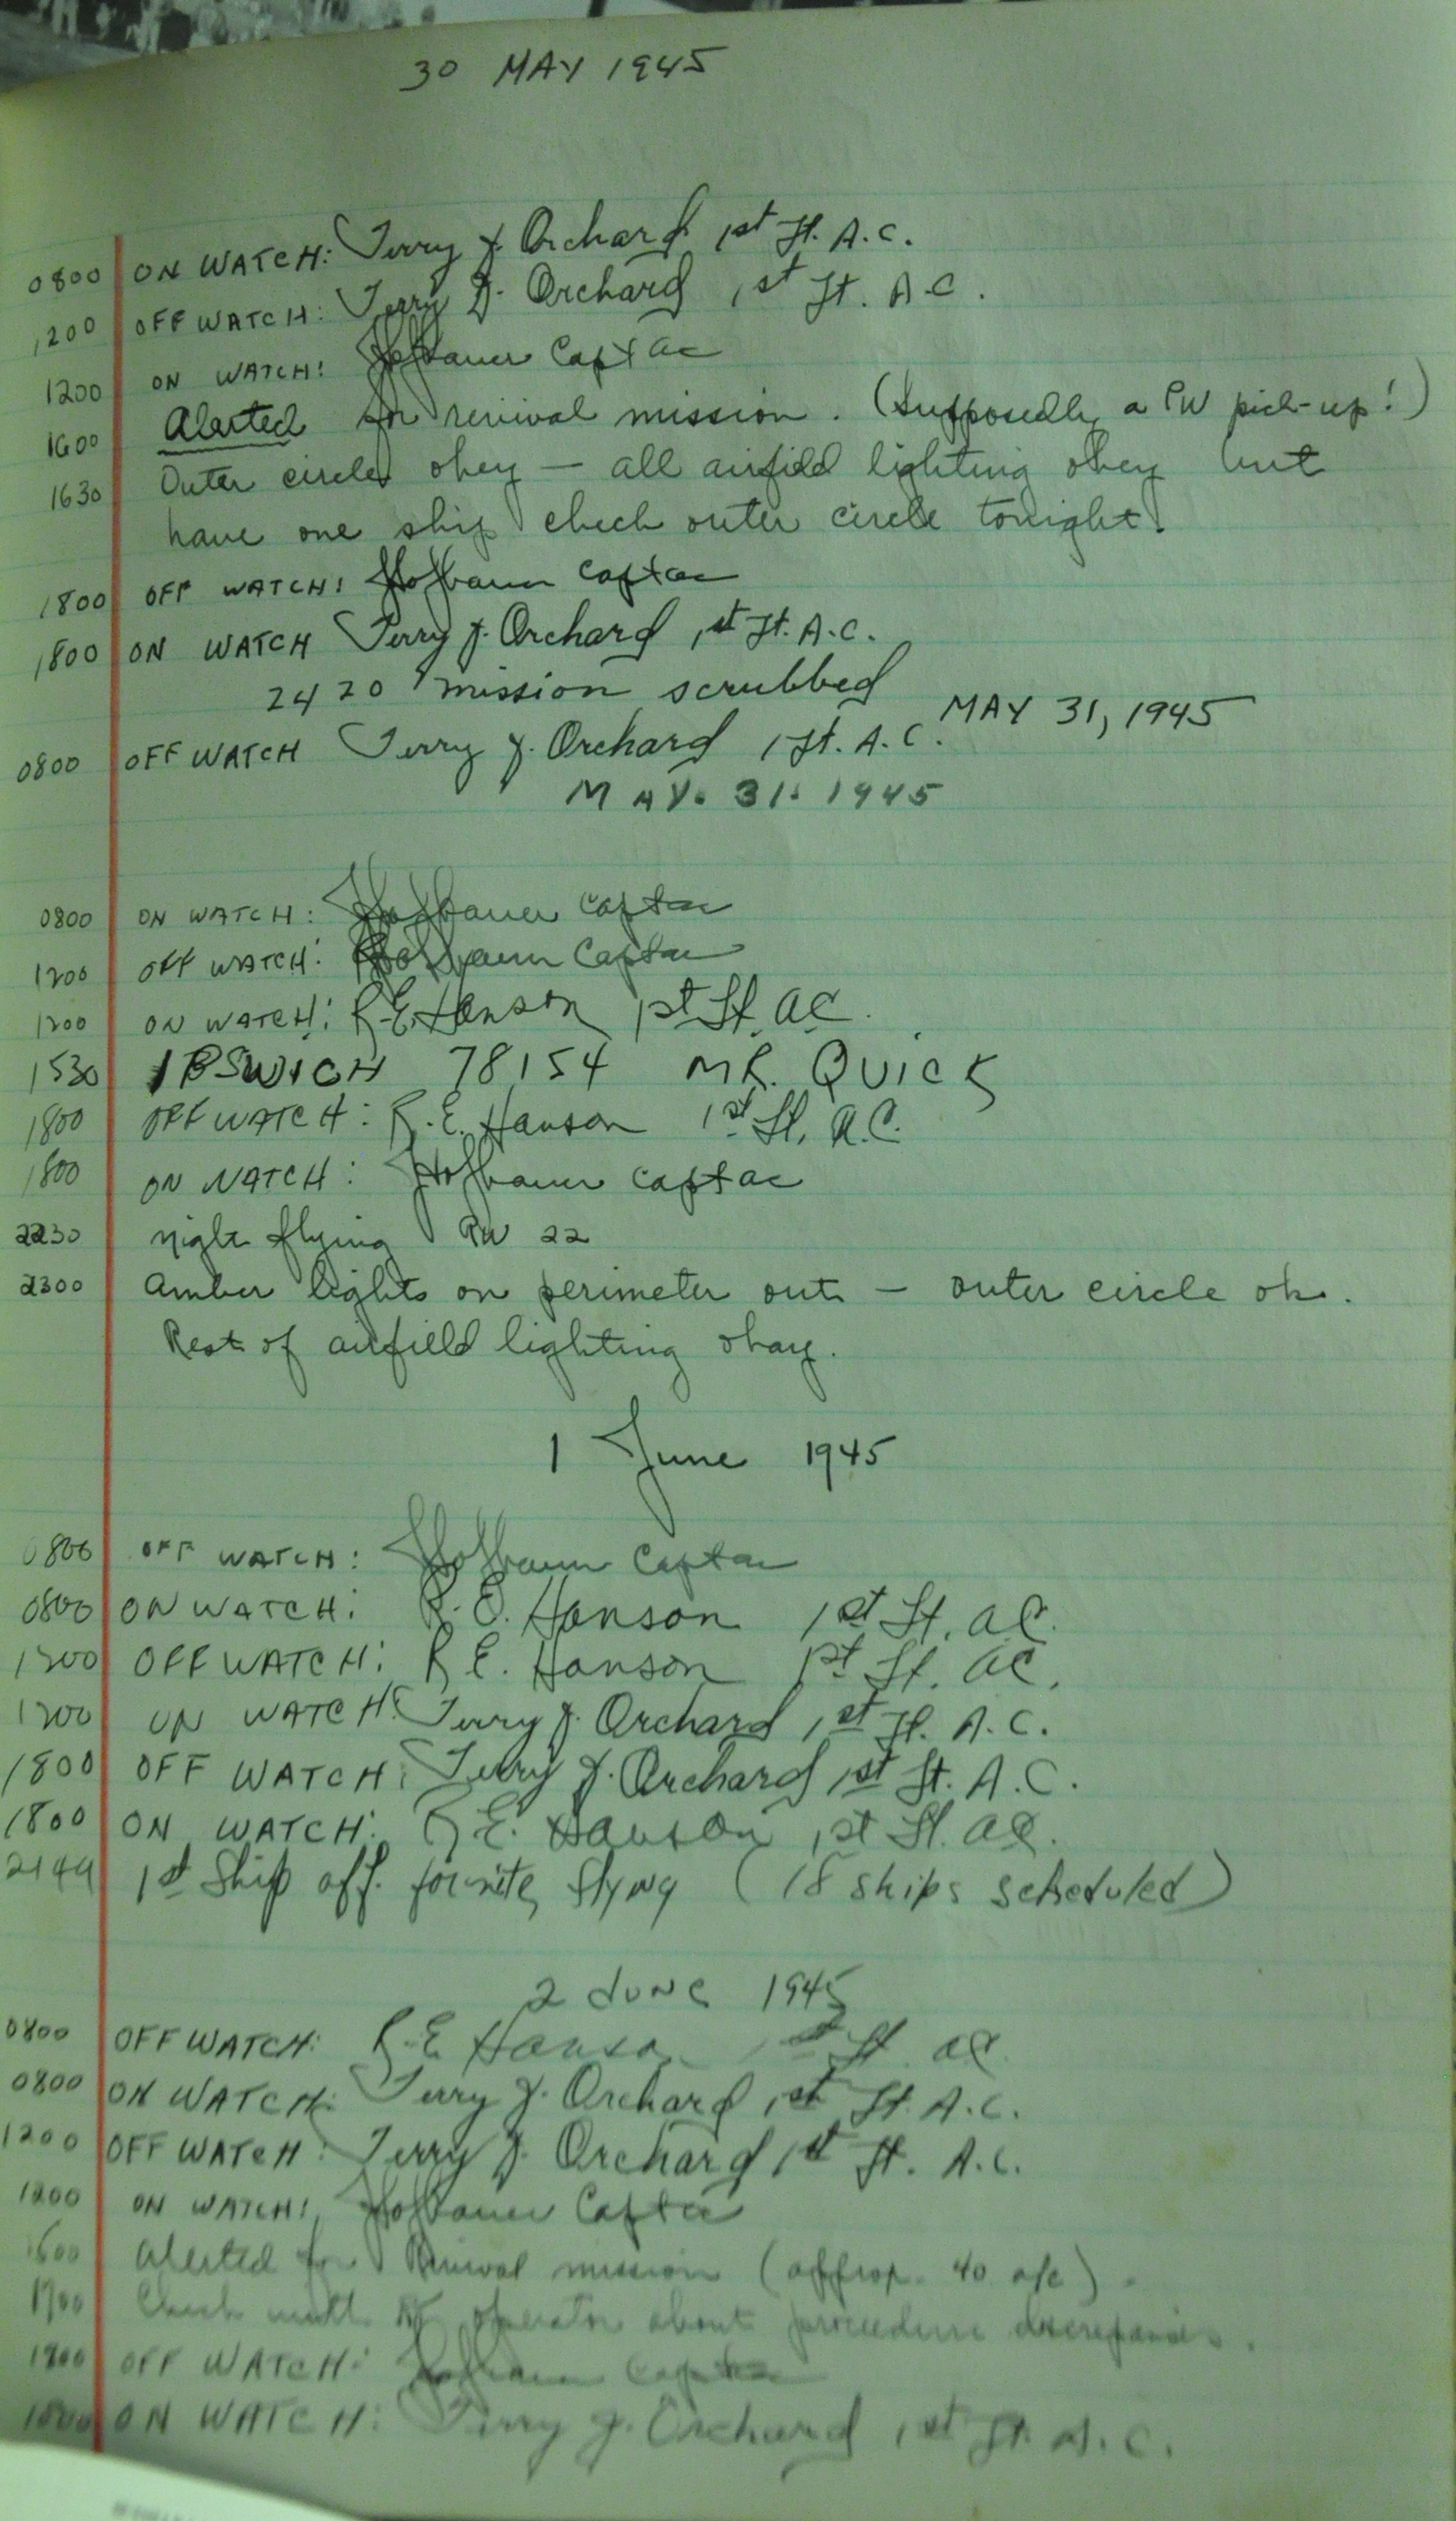 30 MAY 1945
0800 ON WATCH: Terry J. Orchard 1st Lt. A.C.
1200 OFF WATCH: Terry J. Orchard 1st Lt. A.C.
1200 ON WATCH: Hofbauer Capt ac
1600 Alerted for revival mission. (Supposedly a PW pick-up!)
1630 Outer circle okey — all airfield lighting okey but
have one ship check outer circle tonight.
1800 OFF WATCH: Hofbauer Capt ac
1800 ON WATCH Terry J. Orchard 1st Lt. A.C.
2420 mission scrubbed
0800 OFF WATCH Terry J. Orchard 1 Lt. A.C. MAY 31, 1945
MAY. 31. 1945
0800 ON WATCH: Hofbauer Capt ac
1200 OFF WATCH: Hofbauer Capt ac
1200 ON WATCH: R.E. Hanson 1st Lt. AC.
1530 IPSWICH 78154 MR. QUICK
1800 OFF WATCH: R.E. Hanson 1st Lt. A.C.
1800 ON WATCH: Hofbauer Capt ac
2230 night flying RW 22
2300 Amber lights on perimeter out — outer circle ok.
Rest of airfield lighting okay.
1 June 1945
0800 OFF WATCH: Hofbauer Capt ac
0800 ON WATCH: R.E. Hanson 1st Lt. AC.
1200 OFF WATCH: R E. Hanson 1st Lt. AC.
1200 ON WATCH: Terry J. Orchard 1st Lt. A.C.
1800 OFF WATCH: Terry J. Orchard 1st Lt. A.C.
1800 ON WATCH: R E. Hanson 1st Lt. AC.
2144 1st Ship off. for nite flyng (18 ships scheduled)
2 JUNE 1945
0800 OFF WATCH: R.E Hanson 1st Lt. AC
0800 ON WATCH: Terry J. Orchard 1st Lt. A.C.
1200 OFF WATCH: Terry J. Orchard 1st Lt. A.C.
1200 ON WATCH: Hofbauer Capt ac
1600 Alerted for Revival mission (approp. 40 a/c).
1700 Check with operator about procedure discrepancies.
1800 OFF WATCH: Hofbauer Capt ac
1800 ON WATCH: Terry J. Orchard 1st Lt. A.C.